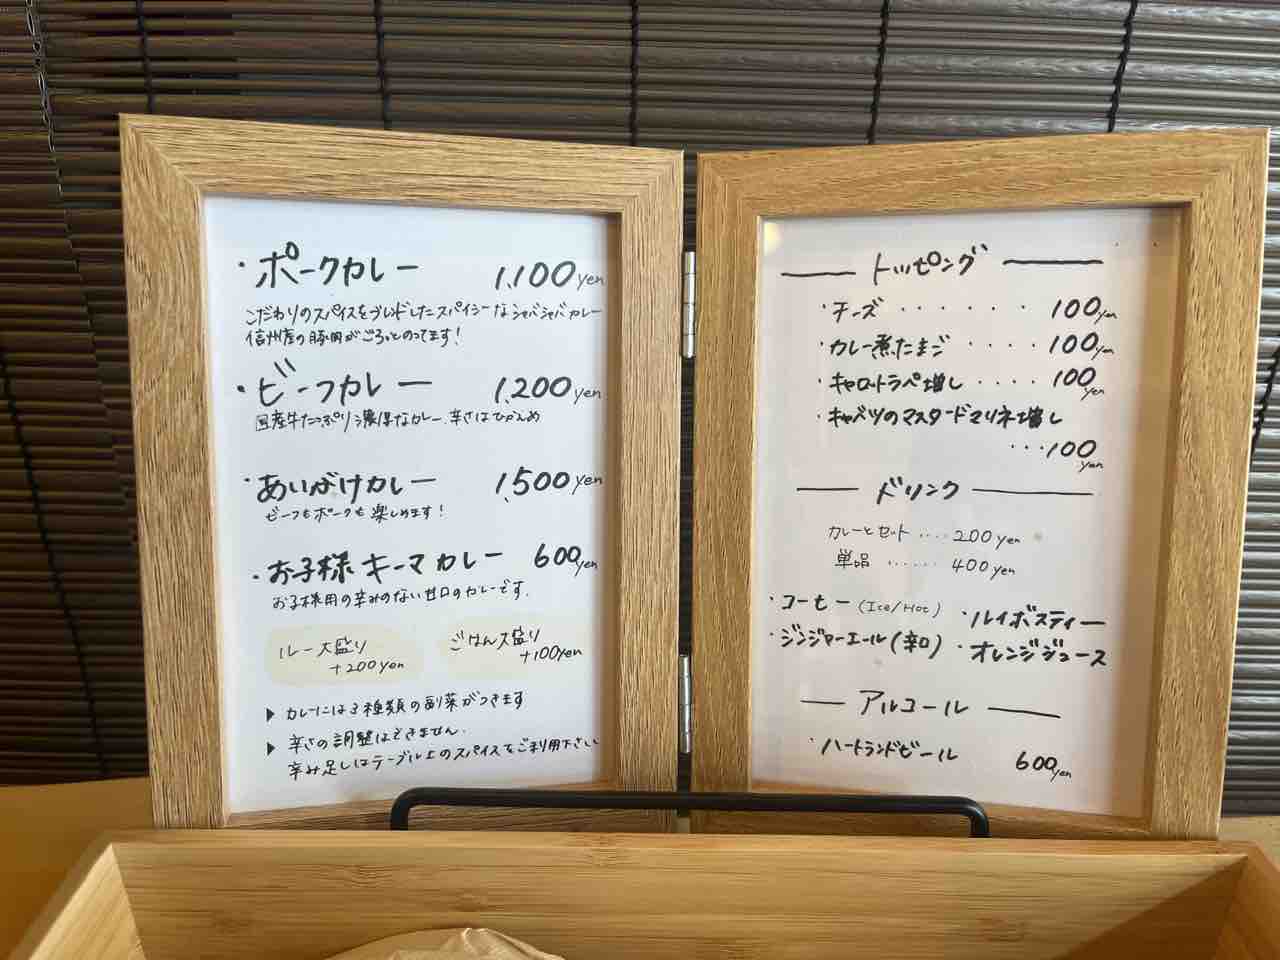 ・ポークカレー 1,100yen
こだわりのスパイスをブレンドしたスパイシーなシャバシャバカレー
信州産の豚肉がごろっとのってます!
・ビーフカレー 1,200yen
国産牛たっぷり濃厚なカレー。辛さはひかえめ
・あいがけカレー 1,500yen
ビーフもポークも楽しめます!
・お子様キーマカレー 600yen
お子様用の辛みのない甘口のカレーです。
ルー大盛り
+200yen
ごはん大盛り
+100yen
▶ カレーには3種類の副菜がつきます
▶ 辛さの調整はできません。
辛み足しはテーブル上のスパイスをご利用下さい
トッピング
・チーズ ・・・・・・ 100yen
・カレー煮たまご ・・・・ 100yen
・キャロットラペ増し ・・・・ 100yen
・キャベツのマスタードマリネ増し
・・・100yen
ドリンク
カレーとセット ・・・・ 200yen
単品 ・・・・・・ 400yen
・コーヒー(Ice/Hot) ・ルイボスティー
・ジンジャーエール(辛口) ・オレンジジュース
アルコール
・ハートランドビール 600yen